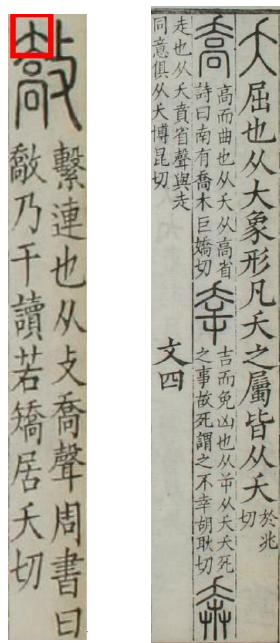 敿
繫連也从攴喬聲周書曰
敿乃干讀若矯居夭切
夭屈也从大象形凡夭之屬皆从夭於兆
切
喬
高而曲也从夭从高省
詩曰南有喬木巨嬌切
㚔
吉而免凶也从屰从夭夭死
之事故死謂之不㚔胡耿切
奔
走也从夭賁省聲與走
同意俱从夭博昆切
文四